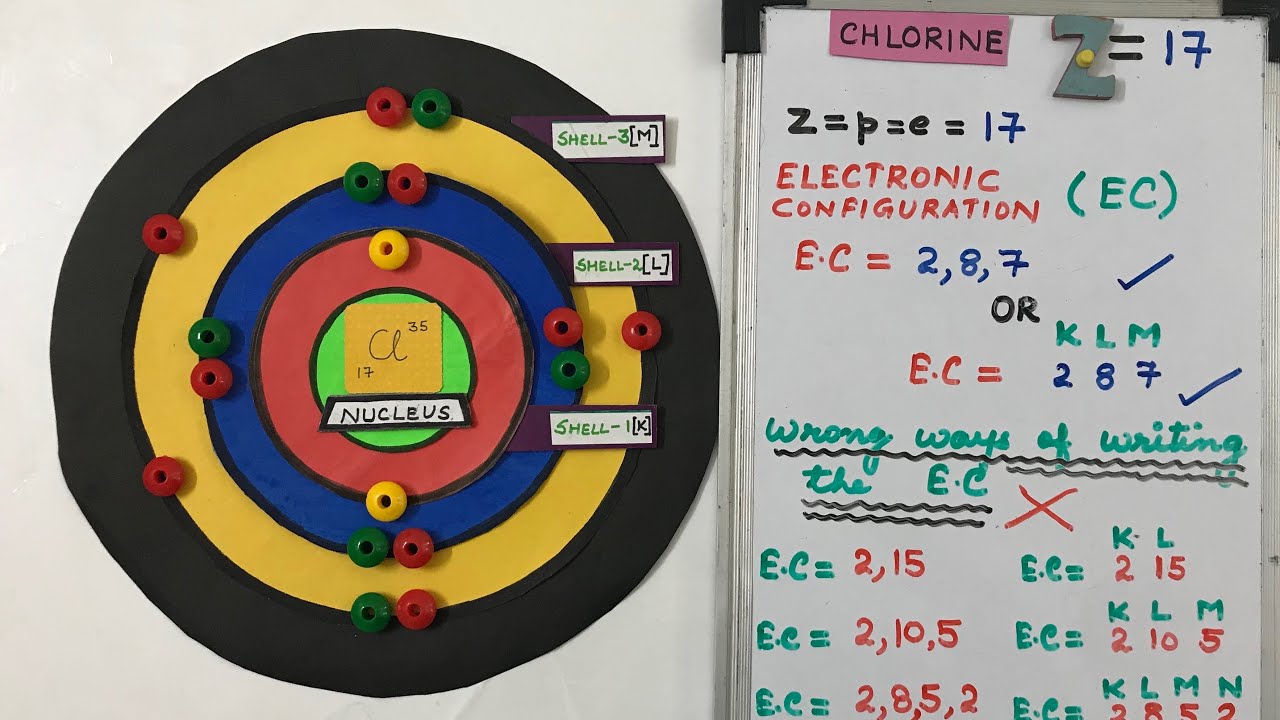 SHELL-3[M]
SHELL-2[L]
Cl 35
17
NUCLEUS
SHELL-1[K]
CHLORINE Z = 17
Z = p = e = 17
ELECTRONIC
CONFIGURATION (EC)
E.C = 2,8,7
OR
K L M
E.C = 2 8 7
Wrong ways of writing
the E.C
K L
E.C = 2,15 E.C = 2 15
K L M
E.C = 2,10,5 E.C = 2 10 5
K L M N
E.C = 2,8,5,2 E.C = 2 8 5 2